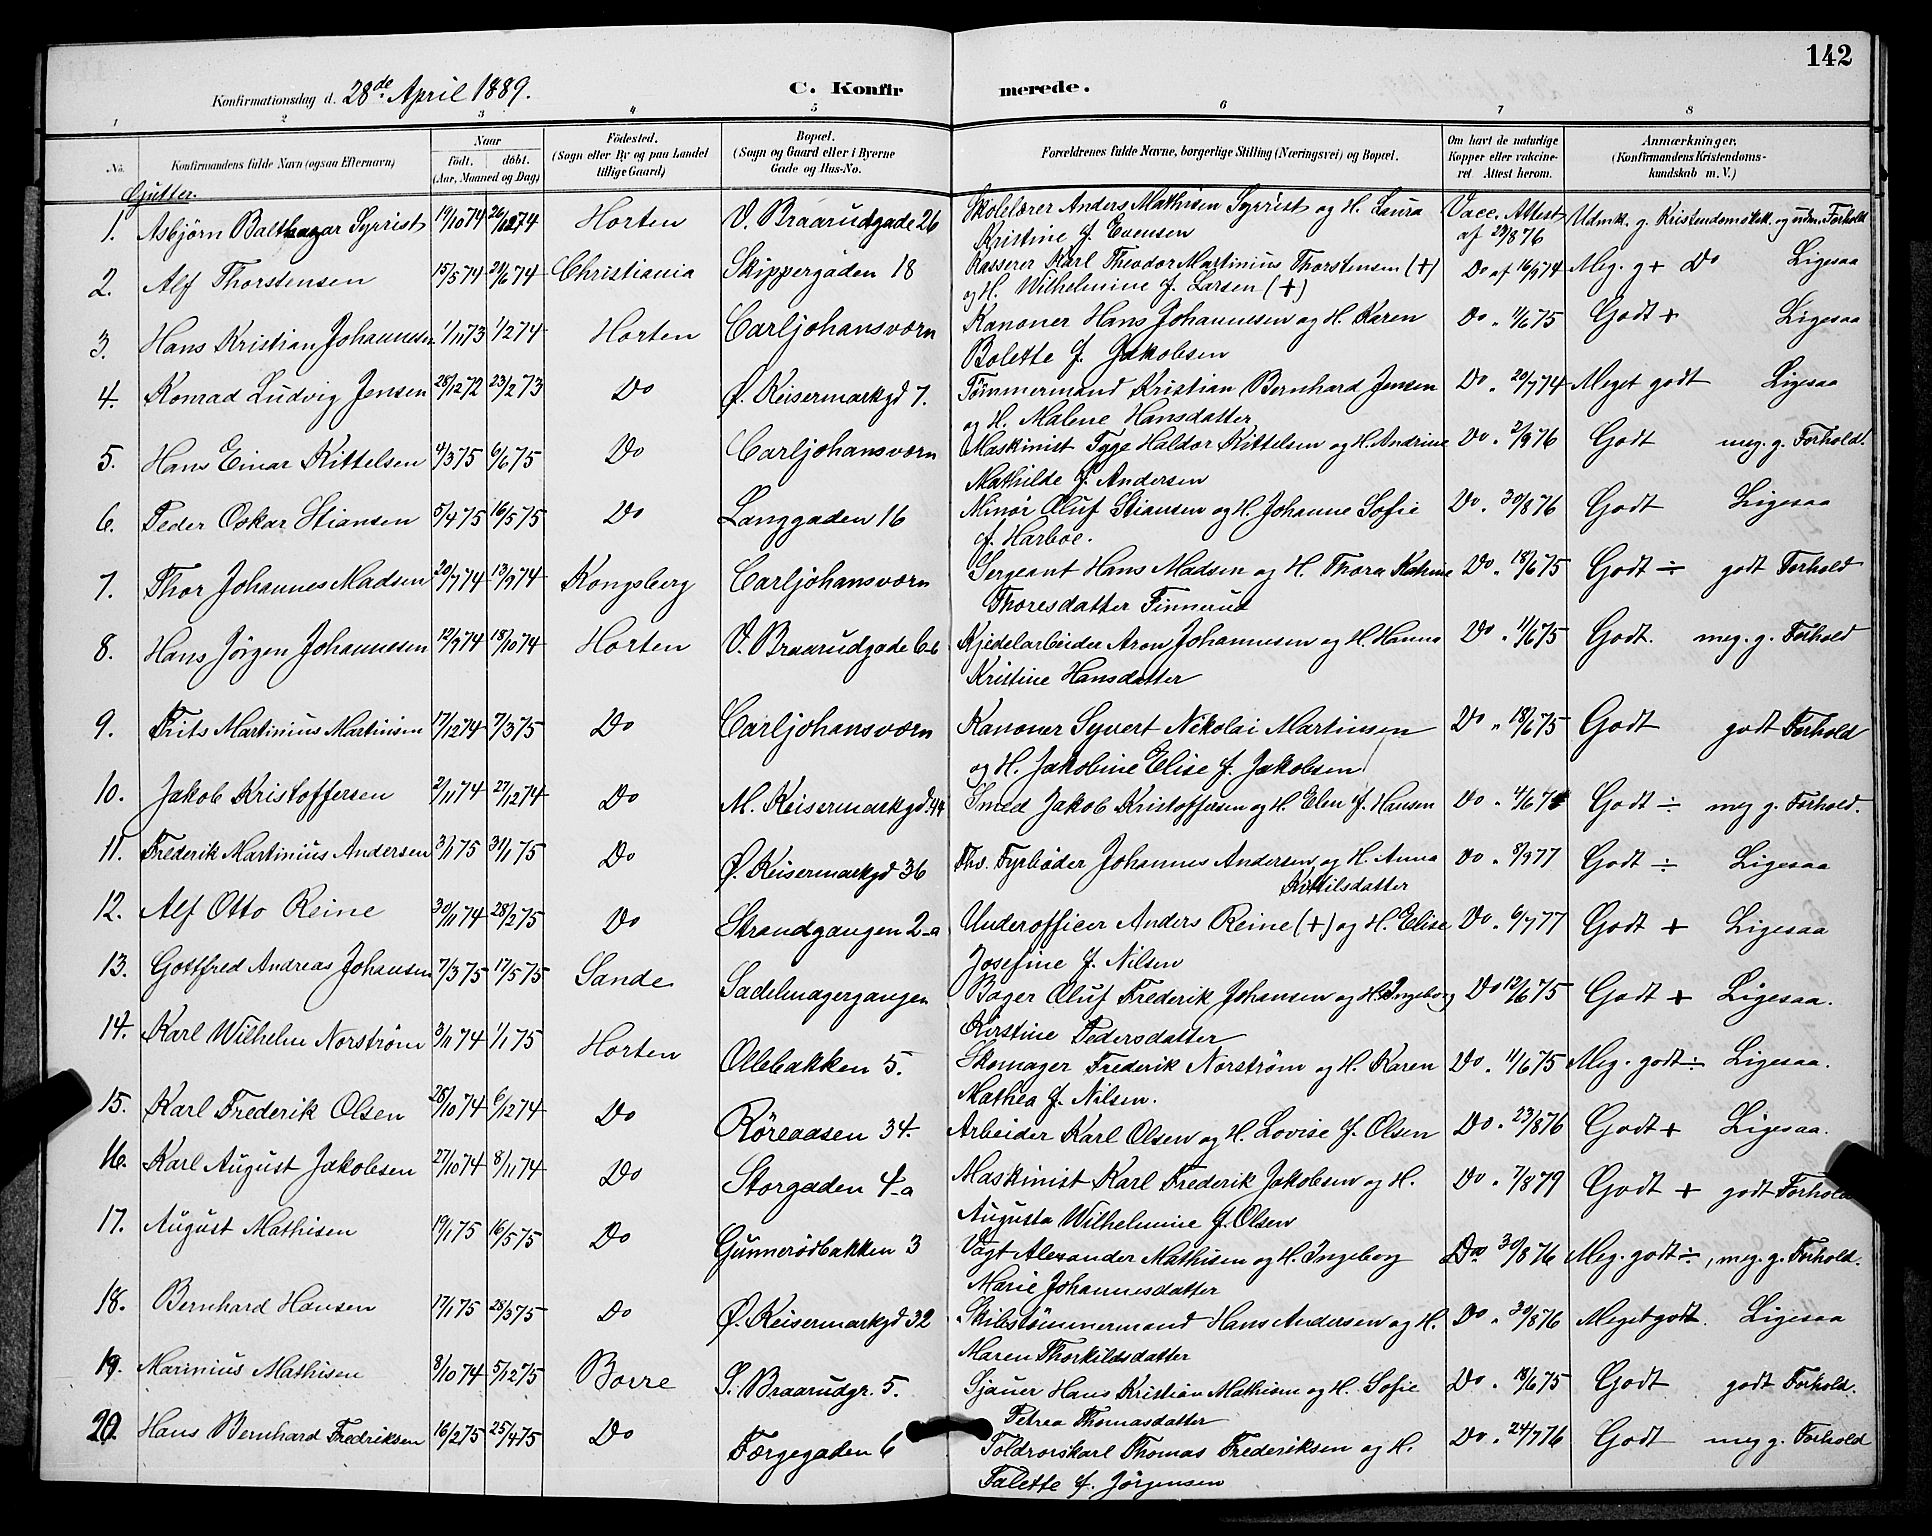 142
Konfirmationsdag d. 28de April 1889.
C. Konfirmerede.
1 2 3 4 5 6 7 8
No. Konfirmandens fulde Navn (ogsaa Efternavn) Naar født. døbt. (Aar, Maaned og Dag) Födested. (Sogn eller By og paa Landet tillige Gaard) Bopæl. (Sogn og Gaard eller i Byerne Gade og Hus-No. Forældrenes fulde Navne, borgerlige Stilling (Næringsvei) og Bopæl. Om havt de naturlige Kopper eller vakcineret Attest herom. Anmærkninger, (Konfirmandens Kristendomskundskab m. V.)
Gutter.
1. Asbjörn Balthazar Syrrist 19/10 74 26/12 74 Horten V. Braarudgade 26 Skolelærer Anders Mathisen Syrrist og H. Laura Vacc. Attest Udmk. g. Kristendomskk. og udm. Forhold
Kristine f. Evensen af 29/8 76
2. Alf Thorstensen 15/5 74 21/6 74 Christiania Skippergaden 18 Kasserer Karl Theodor Martinius Thorstensen (+) Do af 16/9 74 Meg. g + Do Ligesaa
og H. Wilhelmine f. Larsen (+)
3. Hans Kristian Johannesen 1/11 73 1/2 74 Horten Carljohansværn Kanoner Hans Johannesen og H. Karen Do „ 11/6 75 Godt + Ligesaa
Bolette f. Jakobsen
4. Konrad Ludvig Jensen 28/12 72 23/2 73 Do Ø. Keisermarkgd 7. Tömmermand Kristian Bernhard Jensen Do „ 20/7 74 Meget godt Ligesaa
og H. Malene Hansdatter
5. Hans Einar Kittelsen 4/3 75 6/6 75 Do Carljohansværn Maskinist Tyge Haldor Kittelsen og H. Andrine Do „ 2/9 76 Godt meg. g. Forhold.
Mathilde f. Andersen
6. Peder Oskar Stiansen 5/4 75 16/5 75 Do Langgaden 16 Minör Oluf Stiansen og H. Johanne Sofie Do „ 30/8 76 Godt Ligesaa
f. Harboe.
7. Thor Johannes Madsen 20/7 74 13/9 74 Kongsberg Carljohansværn Sergeant Hans Madsen og H. Thora Katrine Do „ 18/6 75 Godt ÷ godt Forhold
Thoresdatter Finnerud
8. Hans Jörgen Johannesen 12/9 74 18/10 74 Horten V. Braarudgade 6-6 Kjedelarbeider Aron Johannesen og H. Hanna Do „ 11/6 75 Godt. meg. g. Forhold
Kristine Hansdatter
9. Frits Martinius Martinsen 17/12 74 7/3 75 Do Carljohansværn Kanoner Syvert Nikolai Martinsen Do „ 18/6 75 Godt godt Forhold
og H. Jakobine Elise f. Jakobsen
10. Jakob Kristoffersen 2/11 74 27/12 74 Do M. Keisermarkgd. 44 Smed Jakob Kristoffersen og H. Elen f. Hansen Do „ 4/6 Godt ÷ meg g. Forhold.
11. Frederik Martinius Andersen 3/1 75 31/1 75 Do Ø. Keisermarkgd 36 Fhv. Fyrböder Johannes Andersen og H. Anna Do „ 8/9 77 Godt ÷ Ligesaa
Kittilsdatter
12. Alf Otto Reine 30/11 74 28/2 75 Do Strandgangen 2-a Underofficer Anders Reine (+) og H. Elise Do „ 6/7 77 Godt + Ligesaa
Josefine f. Nilsen
13. Gottfred Andreas Johansen 7/3 75 17/5 75 Sande Sadelmagergangen Bager Oluf Frederik Johansen og H. Ingeborg Do 12/6 75 Godt + Ligesaa.
Kirstine Pedersdatter
14. Karl Wilhelm Norström 3/11 74 1/1 75 Horten Ollebakken 5. Skomager Frederik Norström og H. Karen Do „ 11/6 75 Meg. godt ÷ Ligesaa.
Mathea f. Nilsen.
15. Karl Frederik Olsen 28/10 74 6/12 74 Do Röreaasen 34. Arbeider Karl Olsen og H. Lovise f. Olsen Do „ 23/8 76 Godt + Ligesaa.
16. Karl August Jakobsen 27/10 74 8/11 74 Do Storgaden 4-a Maskinist Karl Frederik Jakobsen og H. Do „ 7/8 79 Godt + godt Forhold
Augusta Wilhelmine f. Olsen
17. August Mathisen 19/1 75 16/5 75 Do Gunnerödbakken 3 Vagt Alexander Mathisen og H. Ingeborg Do 30/8 76 Meg. godt ÷, meg. g. Forhold.
Marie Johannesdatter
18. Bernhard Hansen 17/1 75 28/3 75 Do Ø. Keisermarkgd 32 Skibstömmermand Hans Andersen og H. Do „ 30/8 76 Meget godt. Ligesaa
Maren Thorkildsdatter
19. Marinius Mathisen 8/10 74 5/12 75 Borre S. Braarudgr. 5. Sjauer Hans Kristian Mathisen og H. Sofie Do „ 18/6 75 Godt godt Forhold.
Petrea Thomasdatter
20. Hans Bernhard Fredriksen 16/2 75 25/4 75 Do Færgegaden 6 Toldrorskarl Thomas Frederiksen og H. Do „ 24/7 76 Godt meg g. Forhold
Talette f. Jörgensen